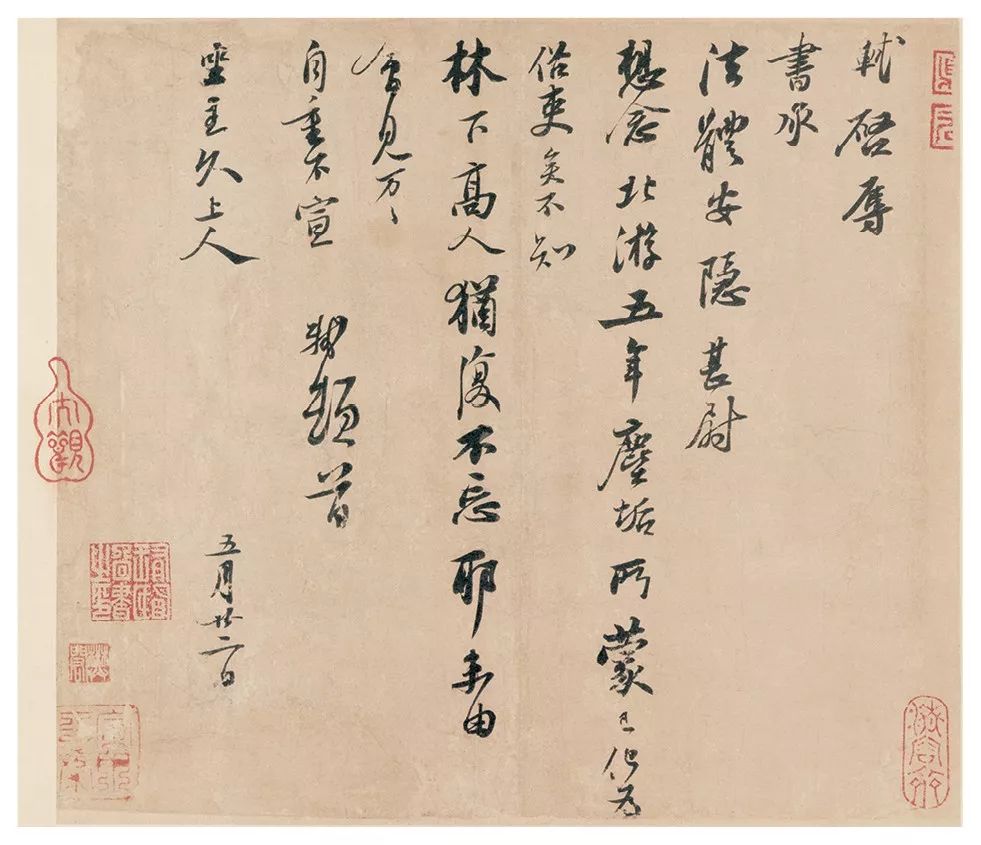 軾啓辱
書承
法體安隱甚尉
想念北游五年塵垢所蒙已化為
俗吏矣不知
林下高人猶復不忘耶未由
會見万〻
自重不宣 軾頓首
坐主久上人 五月廿二日